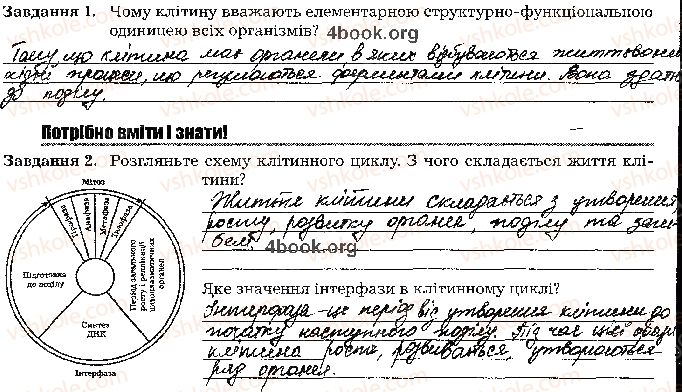 Завдання 1. Чому клітину вважають елементарною структурно-функціональною
одиницею всіх організмів?
4book.org
Тому що клітина має органели в яких відбуваються життєвонеоб
хідні процеси, що регулюються ферментами клітини. Вона здатна
до поділу.
Потрібно вміти і знати!
Завдання 2. Розгляньте схему клітинного циклу. З чого складається життя клі-
тини?
Життя клітини складається з утворення,
росту, розвитку органел, поділу та заги-
белі.
4book.org
Яке значення інтерфази в клітинному циклі?
Інтерфаза - це період від утворення клітини до
початку наступного поділу. Під час цієї фази
клітина росте, розвивається, утворюються
ряд органел.
Мітоз
Профаза
Анафаза
Метафаза
Телофаза
Підготовка
до поділу
Період загального
росту і реплікації
цитоплазматичних
органел
Синтез
ДНК
Інтерфаза